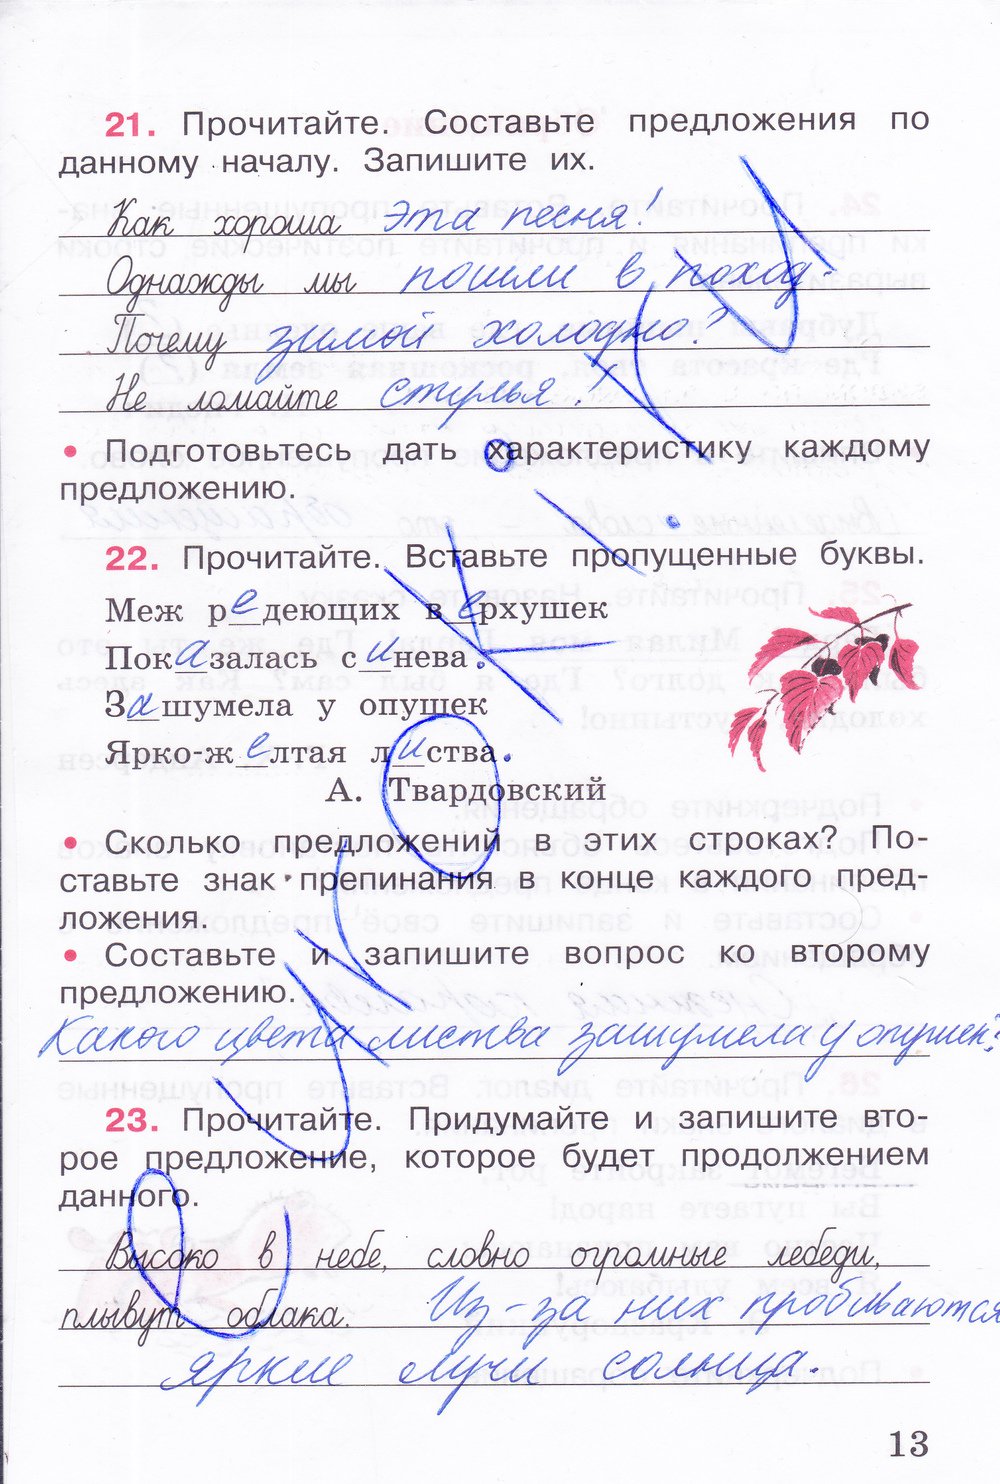 21. Прочитайте. Составьте предложения по
данному началу. Запишите их.
Как хороша эта песня!
Однажды мы пошли в поход.
Почему зимой холодно?
Не ломайте стулья!
• Подготовьтесь дать характеристику каждому
предложению.
22. Прочитайте. Вставьте пропущенные буквы.
Меж редеющих верхушек
Показалась синева.
Зашумела у опушек
Ярко-желтая листва.
А. Твардовский
• Сколько предложений в этих строках? По-
ставьте знак препинания в конце каждого пред-
ложения.
• Составьте и запишите вопрос ко второму
предложению.
Какого цвета листва зашумела у опушек?
23. Прочитайте. Придумайте и запишите вто-
рое предложение, которое будет продолжением
данного.
Высоко в небе, словно огромные лебеди,
плывут облака. Из-за них пробиваются
яркие лучи солнца.
13